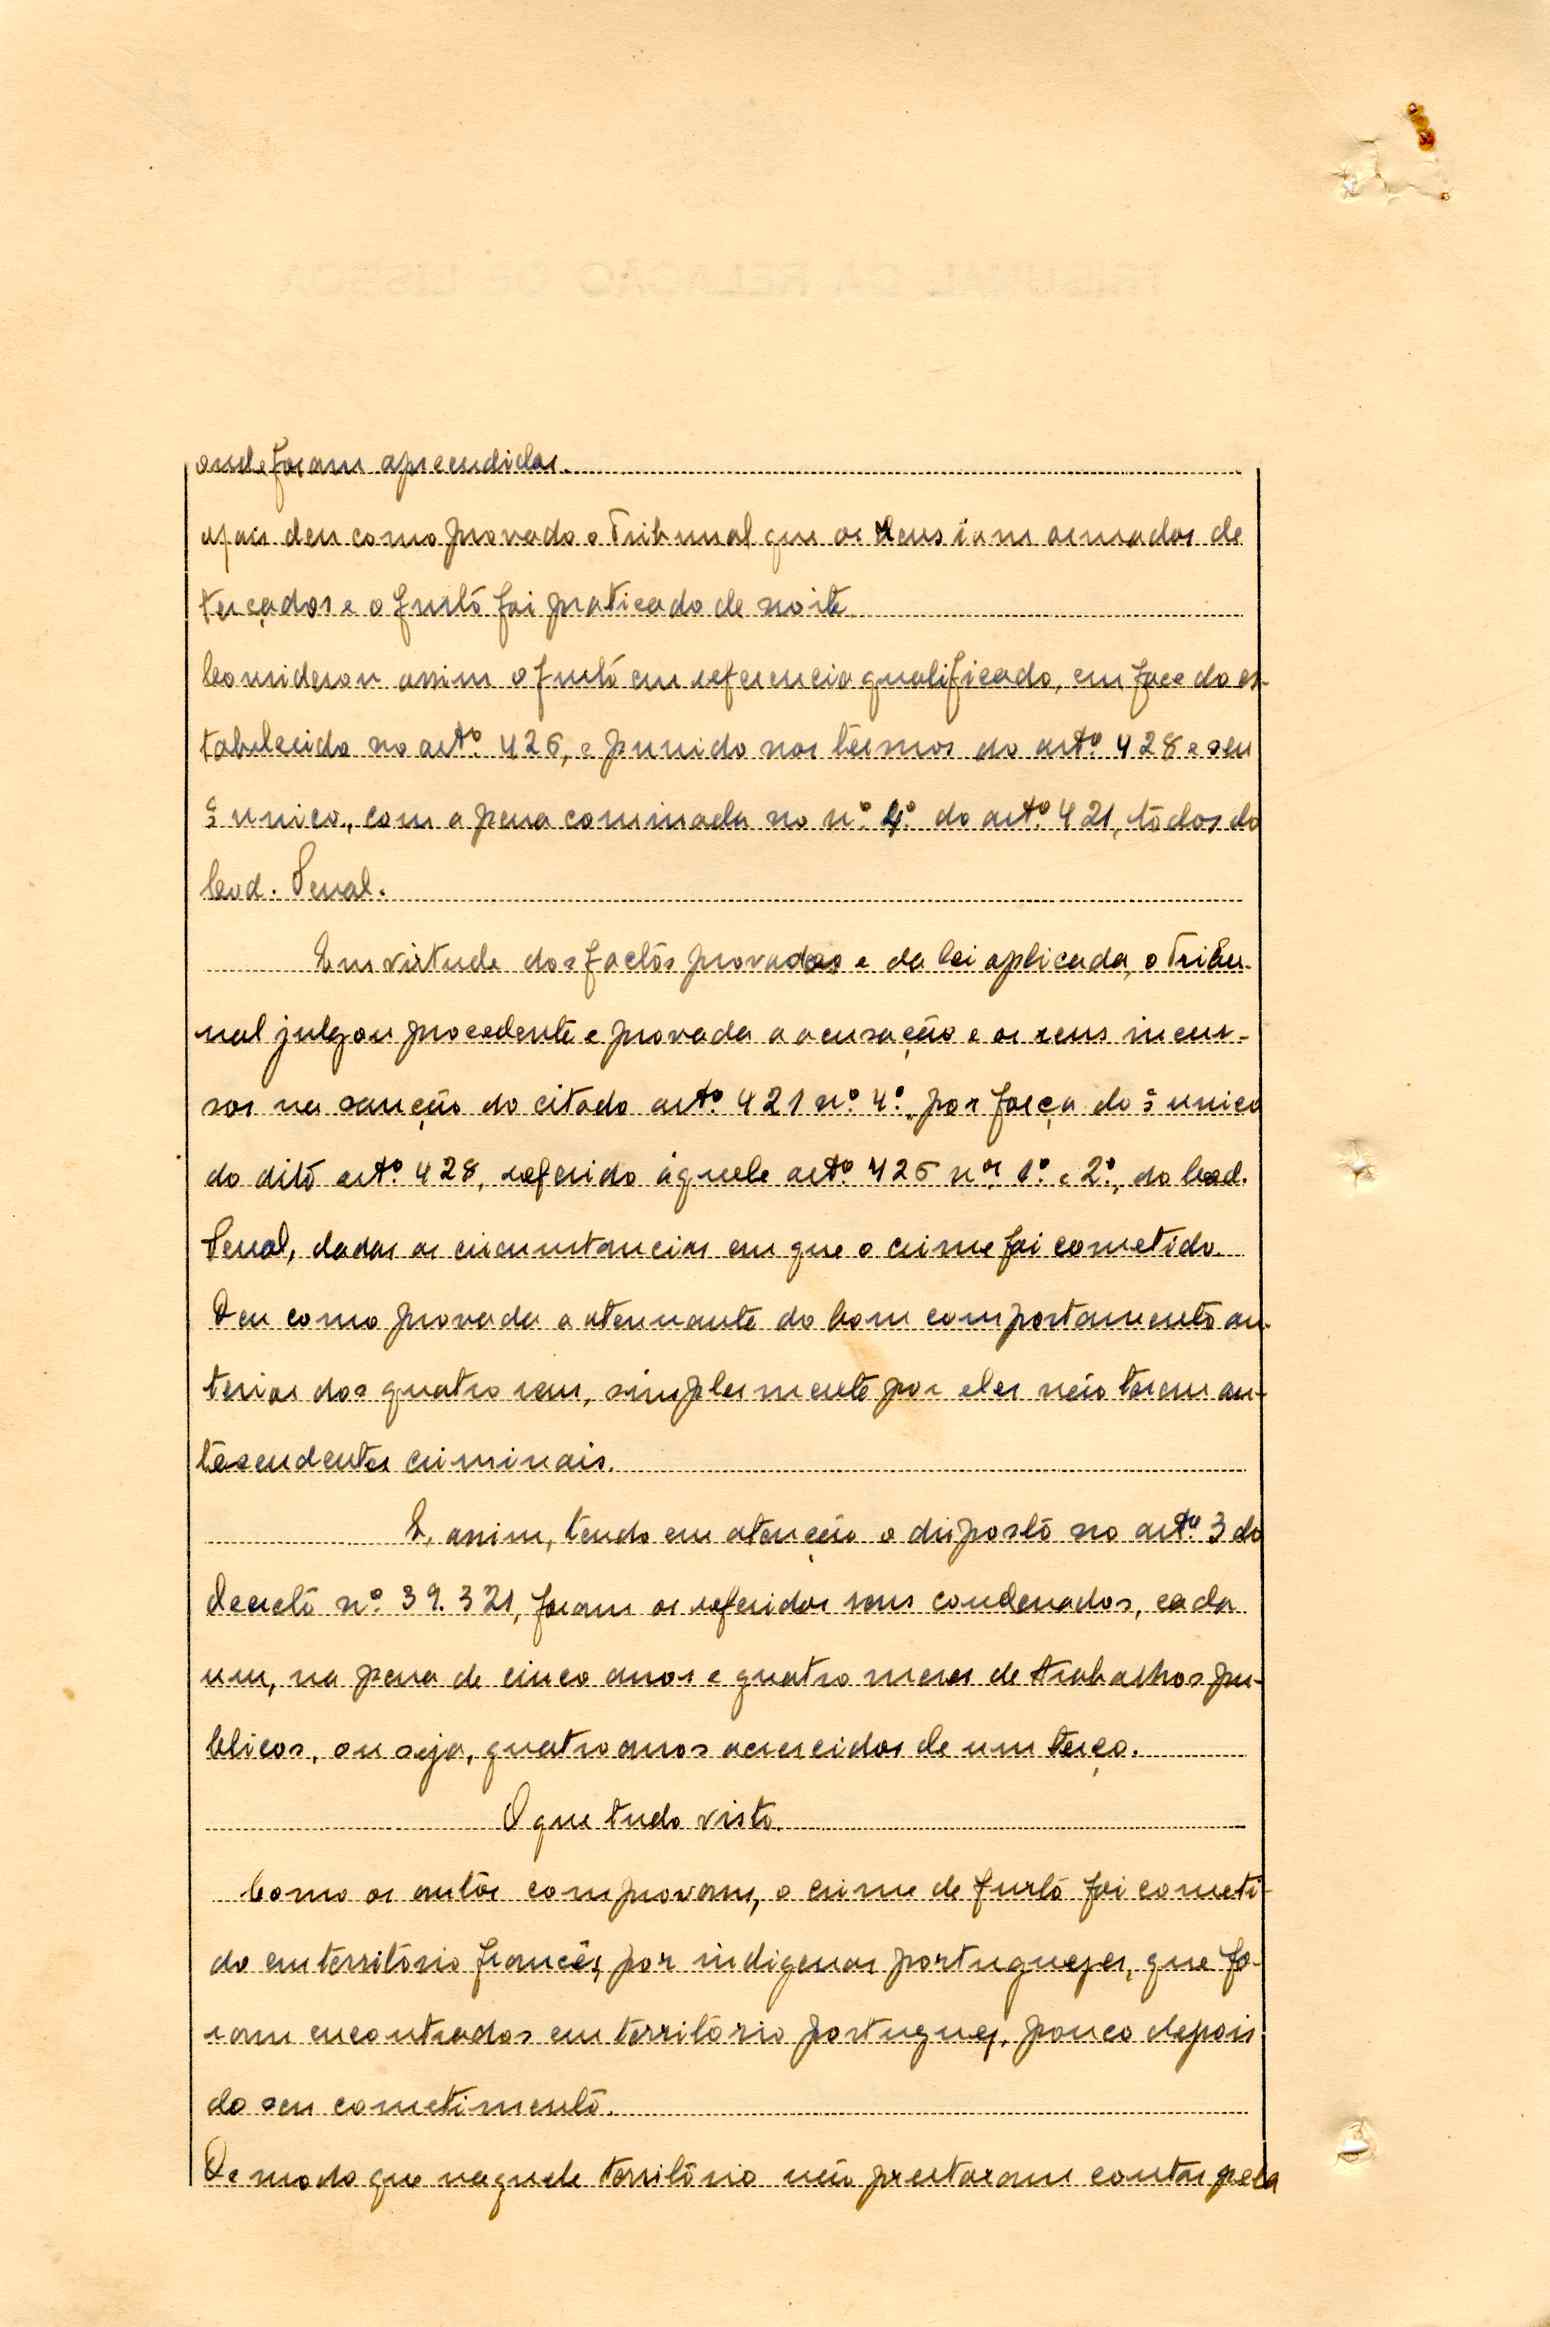 onde foram apreendidos.
mais deu como provado o Tribunal que os reus iam armados de
terçados e o furto foi praticado de noite.
Considerou assim o furto em referencia qualificado, em face do es-
tabelecido no artº. 426, e punido nos termos do artº. 428 e seu
§ unico, com a pena cominada no nº. 4º. do artº. 421, todos do
Cod. Penal.
Em virtude dos factos provados e da lei aplicada, o Tribu-
nal julgou procedente e provada a acusação e os reus incur-
sos na sanção do citado artº. 421 nº. 4º. por força do § unico
do dito artº. 428, referido áquele artº. 426 nºs. 1º. e 2º., do Cod.
Penal, dadas as circunstancias em que o crime foi cometido.
Deu como provada a atenuante do bom comportamento an-
terior dos quatro reus, simplesmente por eles não terem an-
tecendentes criminais.
E, assim, tendo em atenção o disposto no artº. 3 do
Decreto nº. 39.321, foram os referidos reus condenados, cada
um, na pena de cinco anos e quatro meses de trabalhos pu-
blicos, ou seja, quatro anos acrescidos de um terço.
O que tudo visto.
Como os autos comprovam, o crime de furto foi cometi-
do em território francês, por indigenas portuguezes, que fo-
ram encontrados em território portuguez, pouco depois
do seu cometimento.
De modo que naquele território não prestaram contas pela